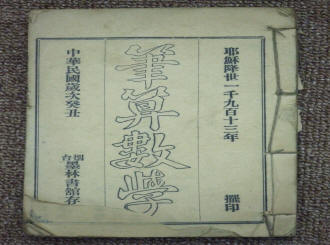 耶穌降世一千九百十三年 擺印
筆算數學
中華民國歲次癸丑 烟台墨林書館存